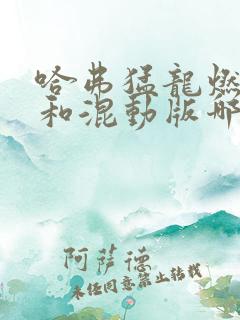 哈弗猛龍燃
和混動版哪
阿薩德
未经同意禁止转载